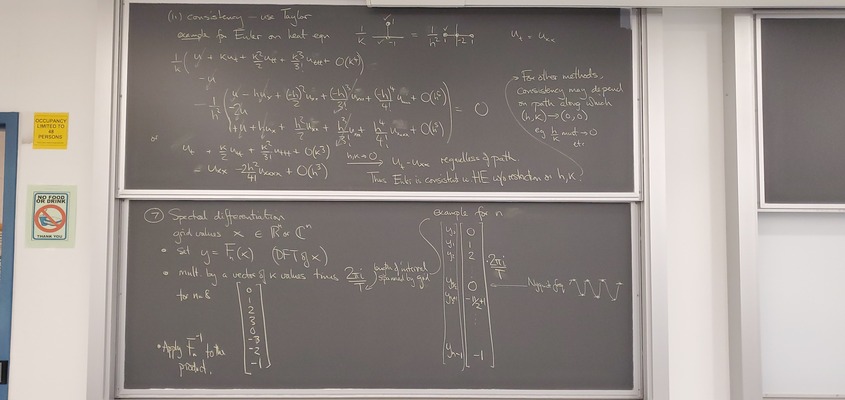 (ii) consistency - use Taylor
example for Euler on heat eqn
u_t = u_xx
1/k ( u + k u_t + k²/2 u_tt + k³/3! u_ttt + O(k⁴)
-u
- 1/h² ( u - h u_x + (-h)²/2 u_xx + (-h)³/3! u_xxx + (-h)⁴/4! u_xxxx + O(h⁵)
-2u
+ u + h u_x + h²/2 u_xx + h³/3! u_xxx + h⁴/4! u_xxxx + O(h⁵) ) = 0
or
u_t + k/2 u_tt + k²/3! u_ttt + O(k³)
= u_xx + 2h²/4! u_xxxx + O(h³)
h,k→0
u_t - u_xx regardless of path.
Thus Euler is consistent w. HE w/o restriction on h, k.
For other methods,
consistency may depend
on path along which
(h,k) → (0,0)
eg h/k must → 0
etc.
OCCUPANCY
LIMITED TO
48
PERSONS
NO FOOD
OR DRINK
THANK YOU
⑦ Spectral differentiation
grid values x ∈ ℝⁿ or ℂⁿ
• Set y = F_n(x) (DFT of x)
• mult. by a vector of k values times 2πi/T
length of interval
spanned by grid
for n=8
0
1
2
3
0
-3
-2
-1
• Apply F_n⁻¹ to the
product.
example for n
y_0 0
y_1 1
y_2 2
0
-n/2+1
y_n-1 -1
2πi/T
Nyquist freq